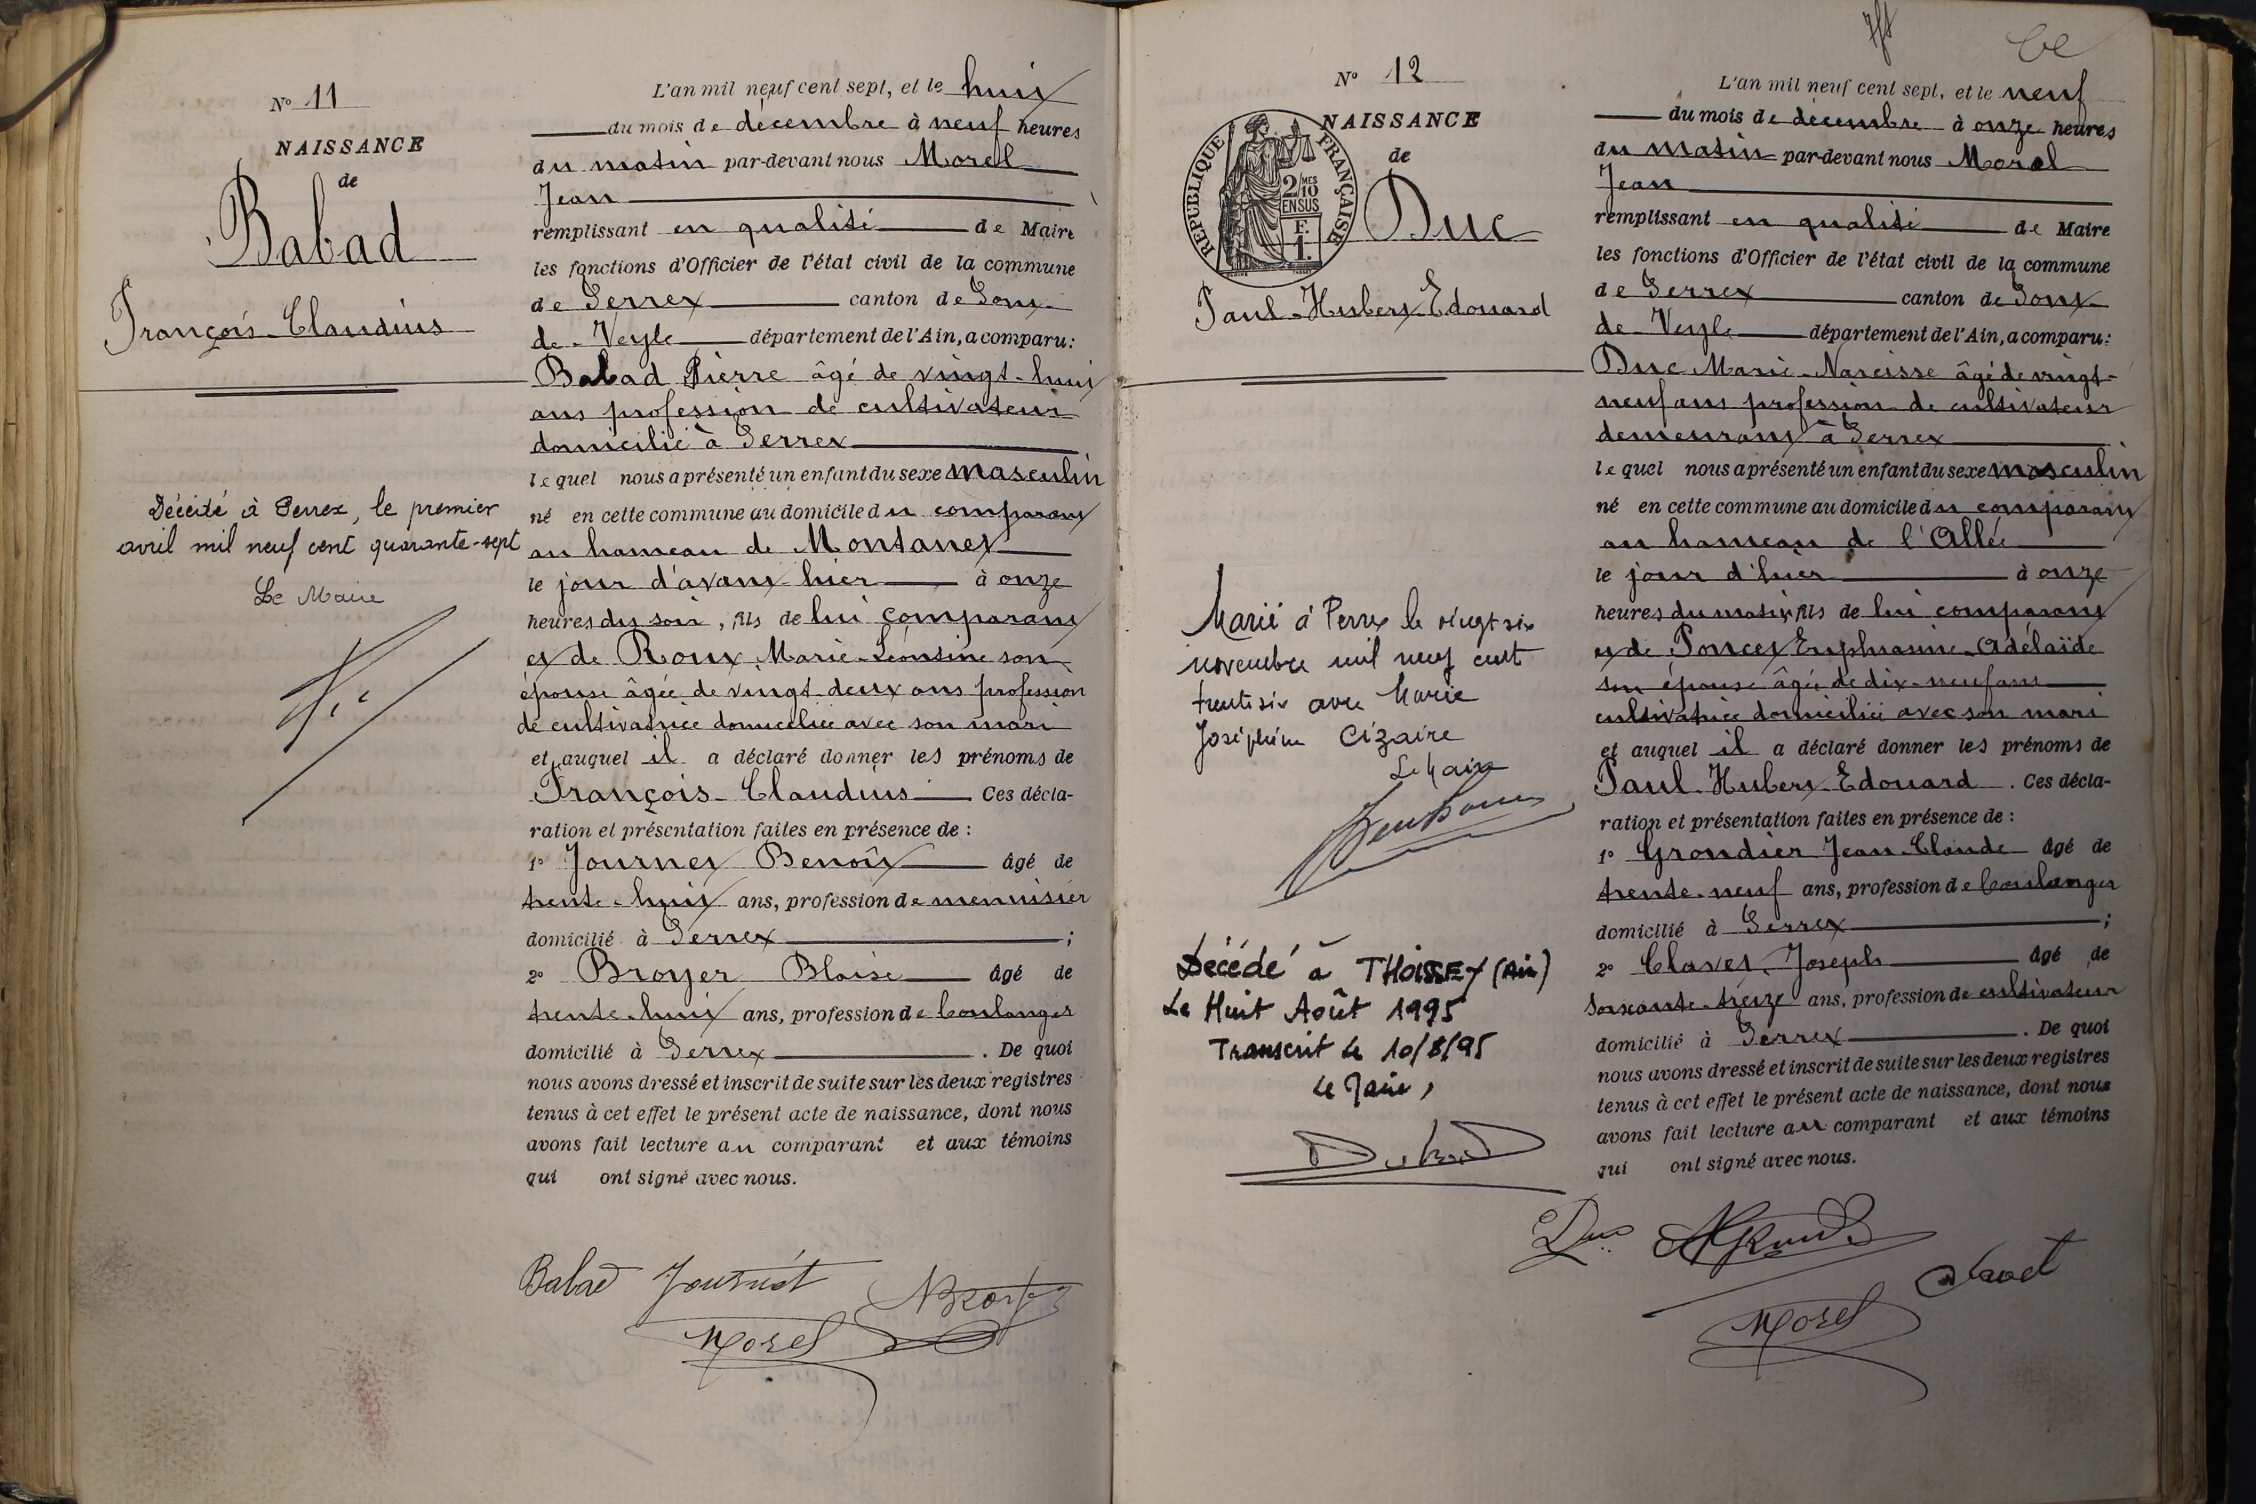 N° 11
NAISSANCE
de
Babad
François-Claudius
Décédé à Perrex, le premier
avril mil neuf cent quarante-sept
Le Maire
L'an mil neuf cent sept, et le huit
du mois de décembre à neuf heures
du matin par-devant nous Morel
Jean
remplissant en qualité de Maire
les fonctions d'Officier de l'état civil de la commune
de Perrex canton de Pont-
de-Veyle département de l'Ain, a comparu:
Babad Pierre âgé de vingt-huit
ans profession de cultivateur
domicilié à Perrex
lequel nous a présenté un enfant du sexe masculin
né en cette commune au domicile du comparant
au hameau de Montanet
le jour d'avant hier à onze
heures du soir, fils de lui comparant
et de Roux Marie-Léontine son
épouse âgée de vingt-deux ans profession
de cultivatrice domiciliée avec son mari
et auquel il a déclaré donner les prénoms de
François-Claudius Ces décla-
ration et présentation faites en présence de :
1° Journet Benoît âgé de
trente-huit ans, profession de menuisier
domicilié à Perrex ;
2° Broyer Blaise âgé de
trente-huit ans, profession de boulanger
domicilié à Perrex . De quoi
nous avons dressé et inscrit de suite sur les deux registres
tenus à cet effet le présent acte de naissance, dont nous
avons fait lecture au comparant et aux témoins
qui ont signé avec nous.
Babad Journet
Morel
N° 12
NAISSANCE
de
RÉPUBLIQUE FRANÇAISE
2 MES
10
EN SUS
F.
1.
Duc
Paul-Hubert-Edouard
Marié à Perrex le vingt six
novembre mil neuf cent
trente six avec Marie
Joséphine Cizaire
Le Maire
Décédé à THOISSEY (Ain)
Le Huit Août 1995
Transcrit le 10/8/95
Le Maire,
L'an mil neuf cent sept, et le neuf
du mois de décembre à onze heures
du matin par-devant nous Morel
Jean
remplissant en qualité de Maire
les fonctions d'Officier de l'état civil de la commune
de Perrex canton de Pont-
de-Veyle département de l'Ain, a comparu:
Duc Marie-Narcisse âgé de vingt-
neuf ans profession de cultivateur
demeurant à Perrex
lequel nous a présenté un enfant du sexe masculin
né en cette commune au domicile du comparant
au hameau de l'Allée
le jour d'hier à onze
heures du matin, fils de lui comparant
et de Poncet Euphrasine-Adélaïde
son épouse âgée de dix-neuf ans
cultivatrice domiciliée avec son mari
et auquel il a déclaré donner les prénoms de
Paul-Hubert-Edouard . Ces décla-
ration et présentation faites en présence de :
1° Grondier Jean-Claude âgé de
trente-neuf ans, profession de boulanger
domicilié à Perrex ;
2° Clavet Joseph âgé de
soixante-treize ans, profession de cultivateur
domicilié à Perrex . De quoi
nous avons dressé et inscrit de suite sur les deux registres
tenus à cet effet le présent acte de naissance, dont nous
avons fait lecture au comparant et aux témoins
qui ont signé avec nous.
Duc
Clavet
Morel